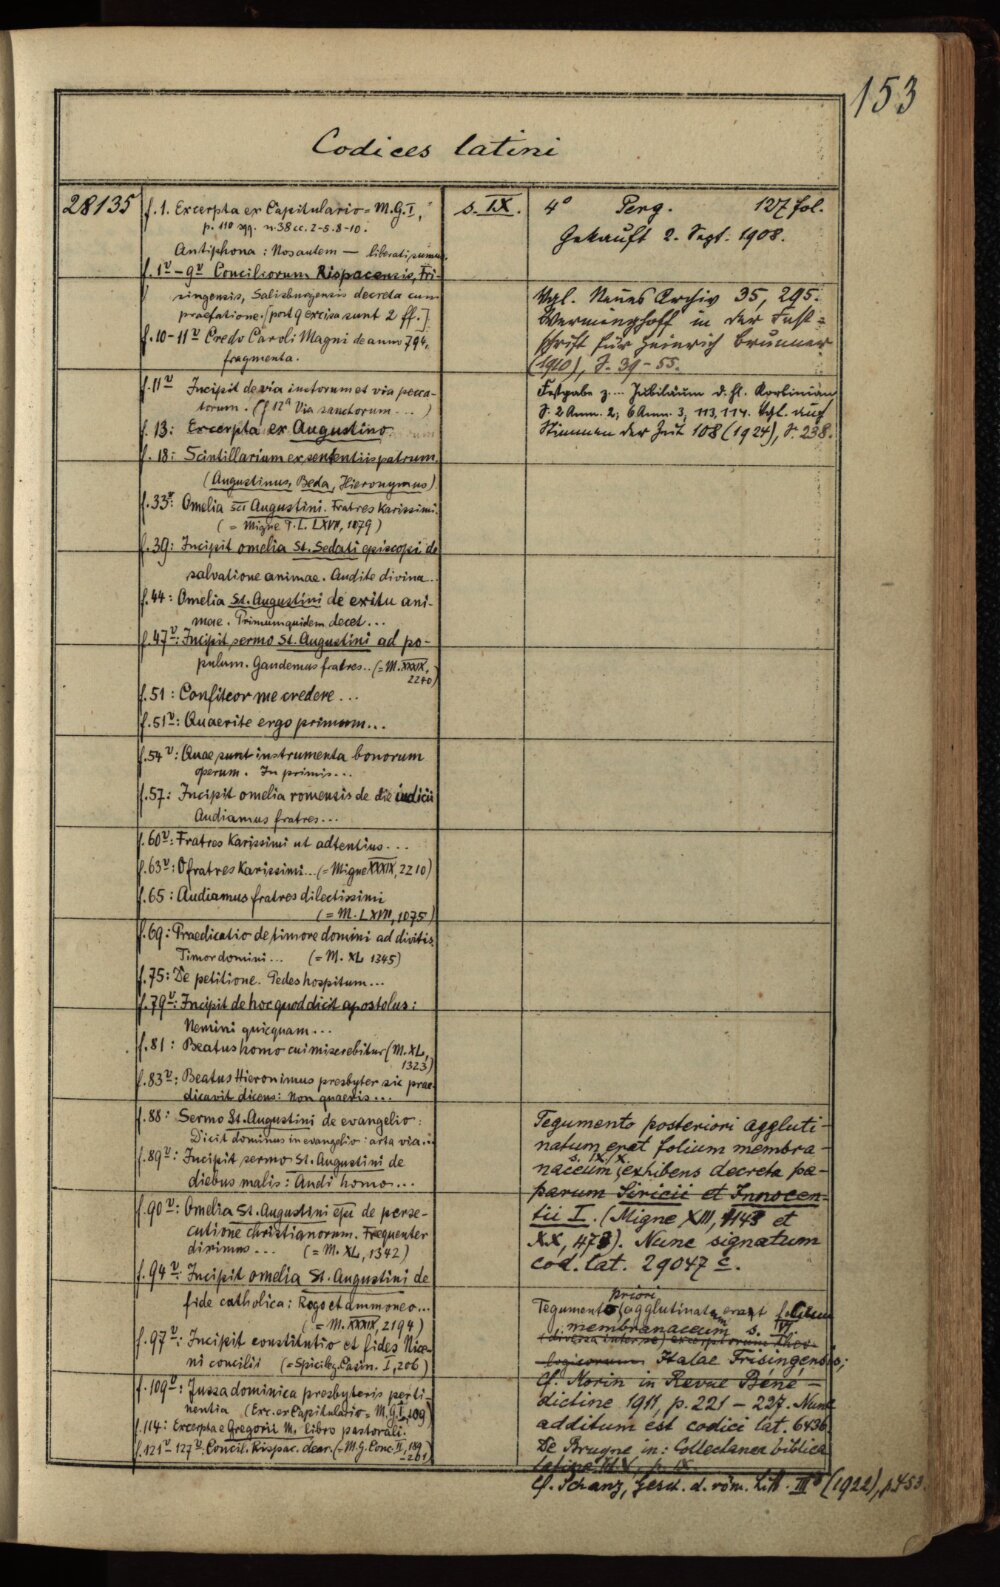 153
Codices latini
28135
f. 1. Excerpta ex Capitulario = M.G. I,
p. 110 sqq. n. 38 cc. 2-5. 8-10.
Antiphona: Nos autem — liberati sumus.
f. 1v – 9v Conciliorum Rispacensis, Fri-
singensis, Salisburgensis decreta cum
praefatione. [post 9 excisa sunt 2 ff.]
f. 10-11v Credo Caroli Magni de anno 794,
fragmenta.
f. 11v Incipit de via iustorum et via pecca-
torum. (f 12a Via sanctorum ... )
f. 13: Excerpta ex Augustino.
f. 18: Scintillarium ex sententiis patrum.
(Augustinus, Beda, Hieronymus)
f. 33v: Omelia sci Augustini. Fratres Karissimi.
(= Migne P. L. LXVII, 1079)
f. 39: Incipit omelia St. Sedati episcopi de
salvatione animae. Audite divina...
f. 44: Omelia St. Augustini de exitu ani-
mae. Primum quidem decet...
f. 47v: Incipit sermo St. Augustini ad po-
pulum. Gaudemus fratres.. (= M. XXXIX,
2210)
f. 51: Confiteor me credere ...
f. 51v: Quaerite ergo primum...
f. 54v: Quae sunt instrumenta bonorum
operum. In primis...
f. 57: Incipit omelia romensis de die iudicii
Audiamus fratres...
f. 60v: Fratres Karissimi ut adtentius...
f. 63v: O fratres Karissimi... (= Migne XXXIX, 2210)
f. 65: Audiamus fratres dilectissimi
(= M. LXVII, 1075)
f. 69: Praedicatio de timore domini ad divites
Timor domini... (= M. XL 1345)
f. 75: De petitione. Pedes hospitum...
f. 79v: Incipit de hoc quod dicit apostolus:
Nemini quicquam...
f. 81: Beatus homo cui miserebitur (M. XL,
1323)
f. 83v: Beatus Hieronimus presbyter sic prae-
dicavit dicens: Non quaeris...
f. 88: Sermo St. Augustini de evangelio:
Dicit dominus in evangelio: arta via...
f. 89v: Incipit sermo St. Augustini de
diebus malis: Audi homo...
f. 90v: Omelia St. Augustini epi de perse-
cutione christianorum. Frequenter
diximus... (= M. XL, 1342)
f. 94v: Incipit omelia St. Augustini de
fide catholica: Rogo et ammoneo...
(= M. XXXIX, 2194)
f. 97v: Incipit constitutio et fides Nice-
ni concilii (= Spicileg. Casin. I, 206)
f. 109v: Jussa dominica presbyteris perti-
nentia (Exc. ex Capitulario = M.G. I, 109)
f. 114: Excerpta e Gregorii M. libro pastorali.
f. 121v-127v: Concil. Rispac. decr. (= M.G. Conc. II, 189
-201)
s. IX.
4° Perg. 127 fol.
Gekauft 2. Sept. 1908.
Vgl. Neues Archiv 35, 295.
Werminghoff in der Fest-
schrift für Heinrich Brunner
(1910), S. 39-55.
Festgabe z. ... Jubiläum d. hl. Korbinian
S. 2 Anm. 2; 6 Anm. 3, 113, 114. Vgl. auch
Stimmen der Zeit 108 (1924), S. 238.
Tegumento posteriori aggluti-
natum erat folium membra-
naceum s. IX/X. exhibens decreta pa-
parum Siricii et Innocen-
tii I. (Migne XIII, 1143 et
XX, 473). Nunc signatum
cod. lat. 29047 c.
Tegumento priori agglutinatum erat folium
membranaceum s. VI
(diversa interne) excerptorum theo-
logicorum Italae Frisingensis;
cf. Morin in Revue Béné-
dictine 1911, p. 221 – 227. Nunc
additum est codici lat. 6436.
De Bruyne in: Collectanea biblica
latina Vol. V, p. IX.
Cf. Schanz, Gesch. d. röm. Litt. III³ (1922), p. 453.